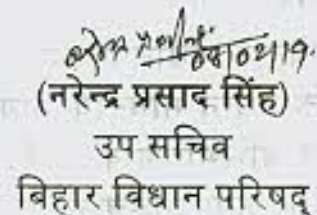 08/02/19.
(नरेन्द्र प्रसाद सिंह)
उप सचिव
बिहार विधान परिषद्